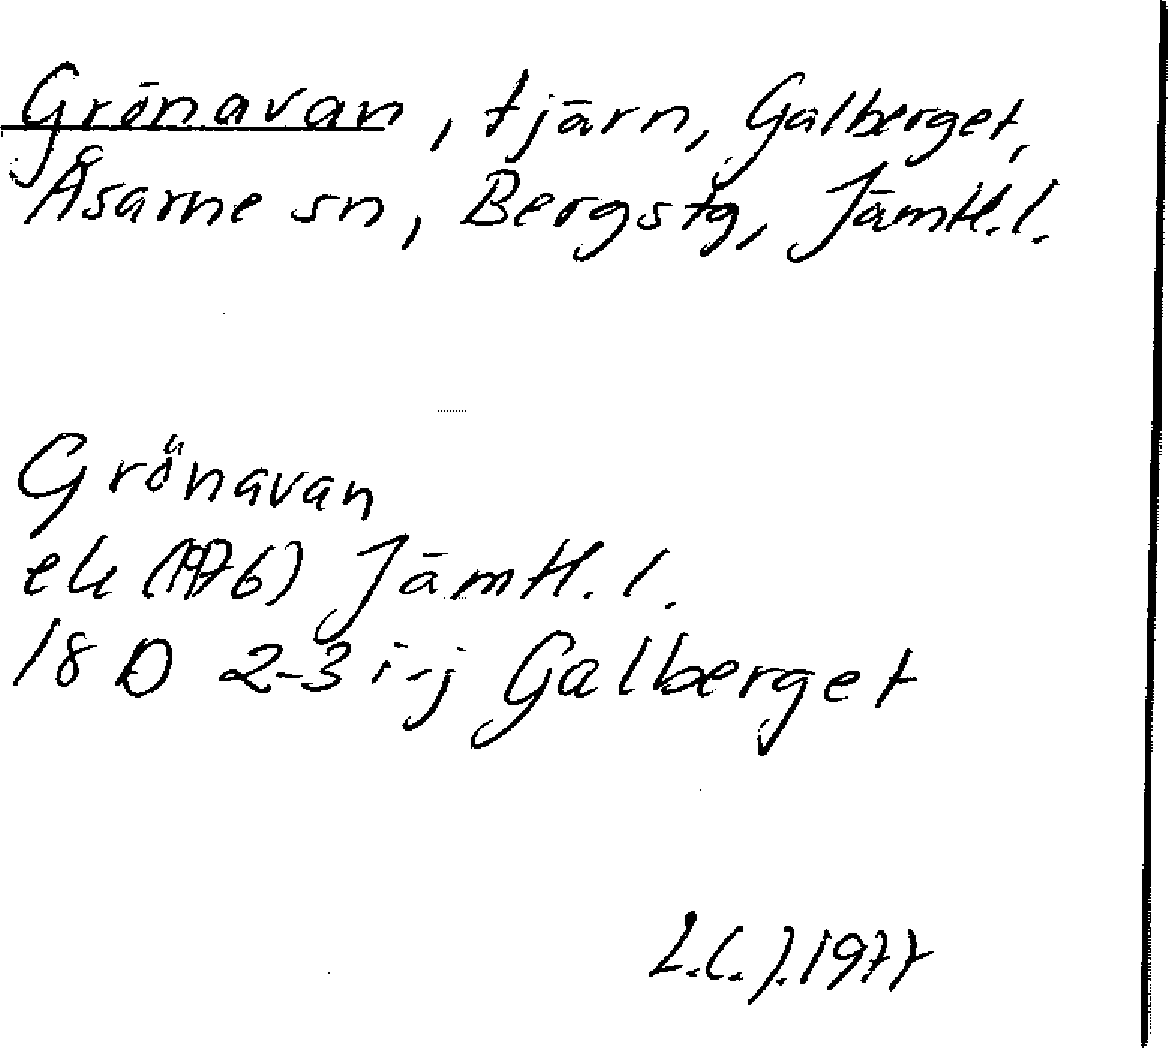 Grönavan, tjärn, Galberget,
Åsarne sn, Bergs tg, Jämtl.l.
Grönavan
ek (1976) Jämtl.l.
18 D 2-3 i-j Galberget
1977